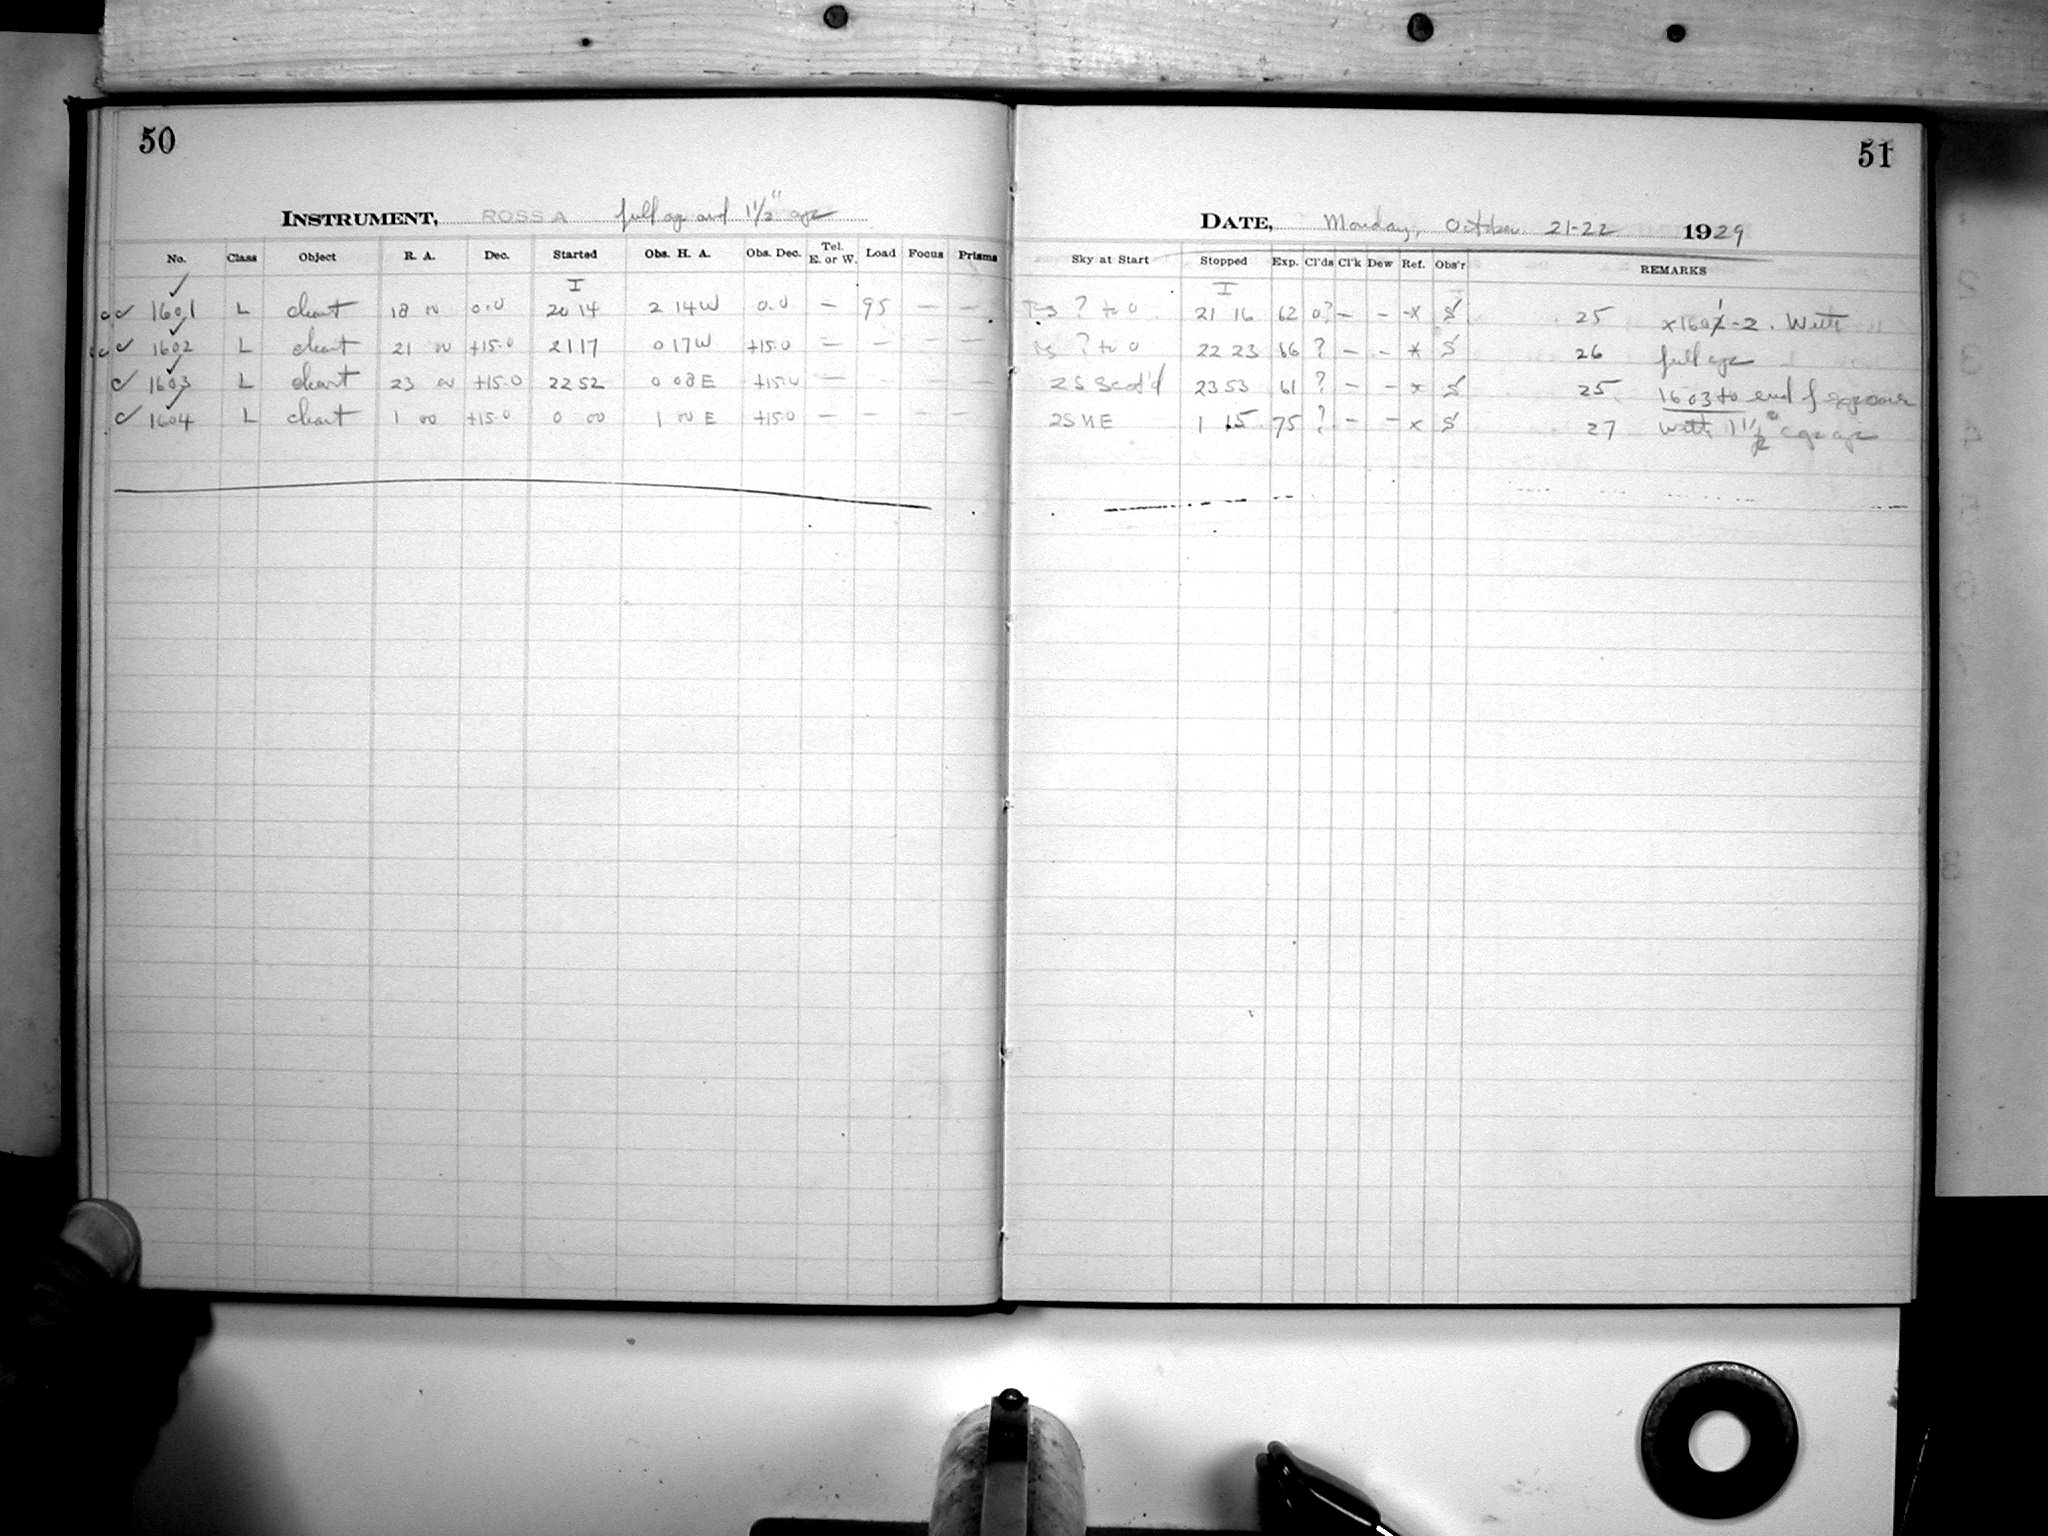 50
INSTRUMENT, ROSS A full ap and 1 1/2" ap
No. Class Object R. A. Dec. Started Obs. H. A. Obs. Dec. Tel. E. or W. Load Focus Prisms
I
1601 L chart 18 00 0.0 20 14 2 14 W 0.0 — 95 — —
1602 L chart 21 00 +15.0 21 17 0 17 W +15.0 — — — —
1603 L chart 23 00 +15.0 22 52 0 08 E +15.0 — — — —
1604 L chart 1 00 +15.0 0 00 1 00 E +15.0 — — — —
51
DATE, Monday, October 21-22 1929
Sky at Start Stopped Exp. Cl'ds Cl'k Dew Ref. Obs'r REMARKS
I
? to 0 21 16 62 0? — — x S 25 x1601-2. With
? to 0 22 23 66 ? — — x S 26 full ap
2S Scat'd 23 53 61 ? — — x S 25 1603 to end of exposures
2S NE 1 15 75 ? — — x S 27 with 1 1/2" ap